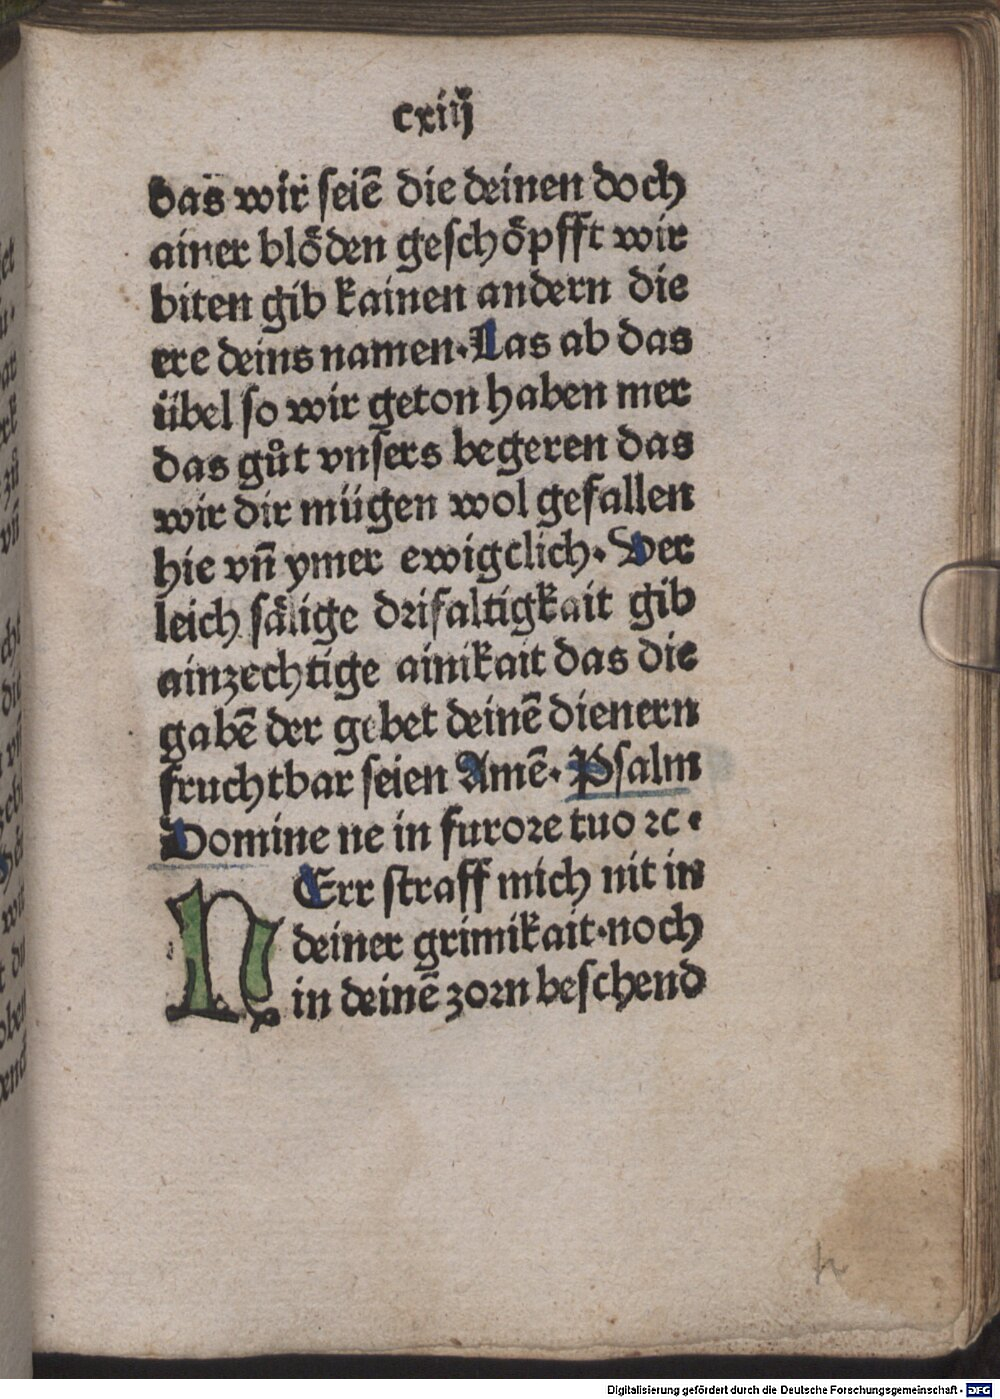 cxiiȷ
das wir seiē die deinen doch
ainer blöden geschöpfft wir
biten gib kainen andern die
ere deins namen. Las ab das
übel so wir geton haben mer
das gůt vnsers begeren das
wir dir mügen wol gefallen
hie vn̄ ymer ewigclich. Ver
leich sälige drifaltigkait gib
ainzechtige ainikait das die
gabē der gebet deinē dienern
fruchtbar seien Amē. Psalm
Domine ne in furore tuo ꝛc.
HErr straff mich nit in
deiner grimikait. noch
in deinē zorn beschend
Digitalisierung gefördert durch die Deutsche Forschungsgemeinschaft - DFG